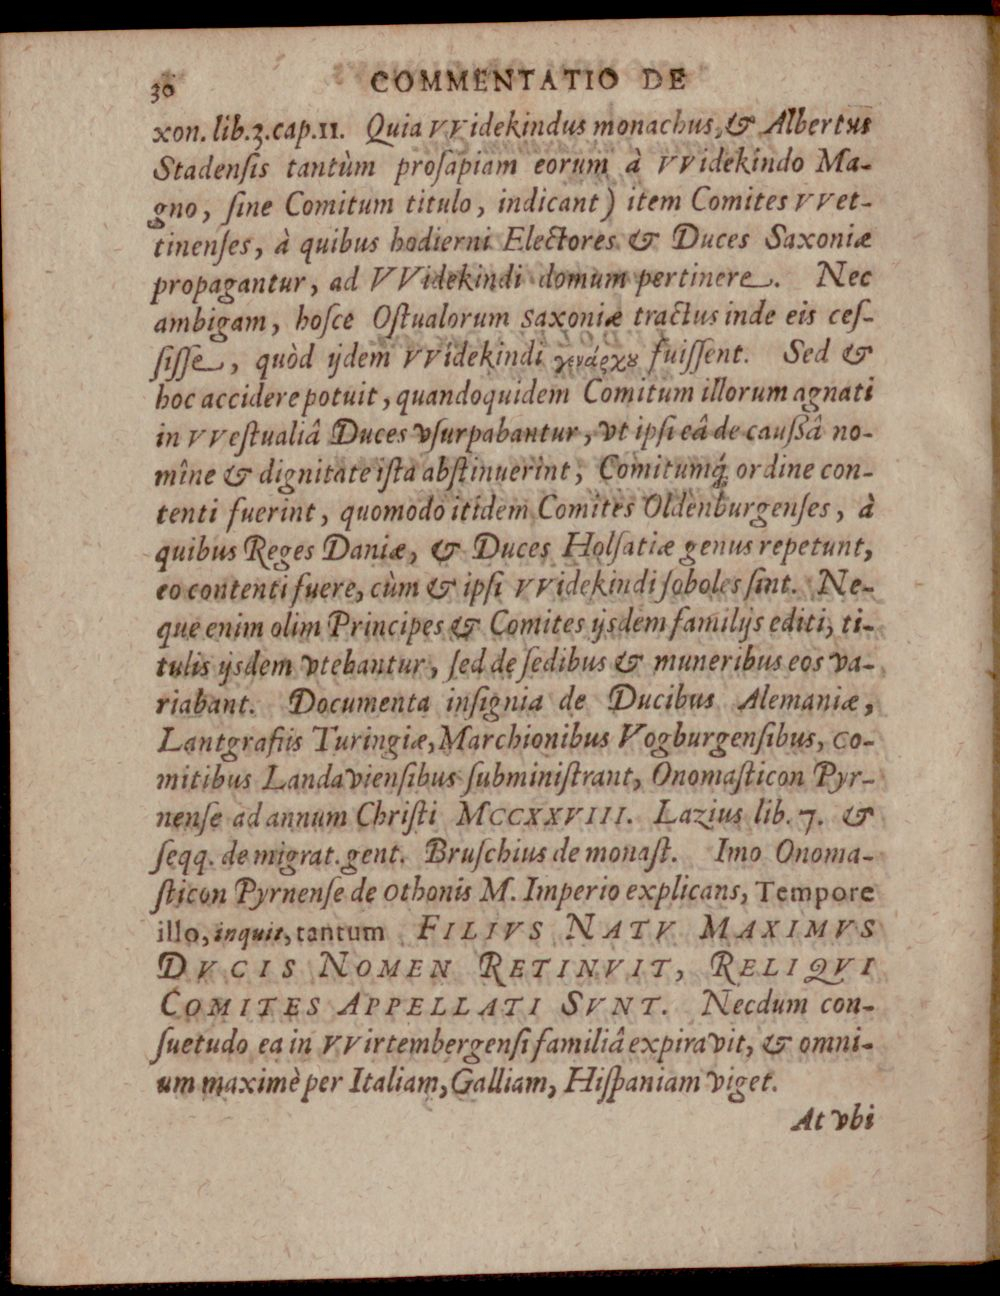 30 COMMENTATIO DE
xon. lib.3.cap.11. Quia VVidekindus monachus, & Albertus
Stadensis tantùm prosapiam eorum à VVidekindo Ma-
gno, sine Comitum titulo, indicant) item Comites VVet-
tinenses, à quibus hodierni Electores & Duces Saxoniæ
propagantur, ad VVidekindi domum pertinere. Nec
ambigam, hosce Ostualorum Saxoniæ tractus inde eis ces-
sisse, quòd ijdem VVidekindi γενάρχȣ fuissent. Sed &
hoc accidere potuit, quandoquidem Comitum illorum agnati
in VVestualiâ Duces vsurpabantur, vt ipsi eâ de caußâ no-
mîne & dignitate ista abstinuerint, Comitumq́; ordine con-
tenti fuerint, quomodo itidem Comites Oldenburgenses, à
quibus Reges Daniæ, & Duces Holsatiæ genus repetunt,
eo contenti fuere, cùm & ipsi VVidekindi soboles sint. Ne-
que enim olim Principes & Comites ijsdem familijs editi, ti-
tulis ijsdem vtebantur, sed de sedibus & muneribus eos va-
riabant. Documenta insignia de Ducibus Alemaniæ,
Lantgrafiis Turingiæ, Marchionibus Vogburgensibus, Co-
mitibus Landaviensibus subministrant, Onomasticon Pyr-
nense ad annum Christi MCCXXVIII. Lazius lib. 7. &
seqq. de migrat. gent. Bruschius de monast. Imo Onoma-
sticon Pyrnense de Othonis M. Imperio explicans, Tempore
illo, inquit, tantum FILIVS NATV MAXIMVS
DVCIS NOMEN RETINVIT, RELIQVI
COMITES APPELLATI SVNT. Necdum con-
suetudo ea in VVirtembergensi familiâ expiravit, & omni-
um maximè per Italiam, Galliam, Hispaniam viget.
At vbi